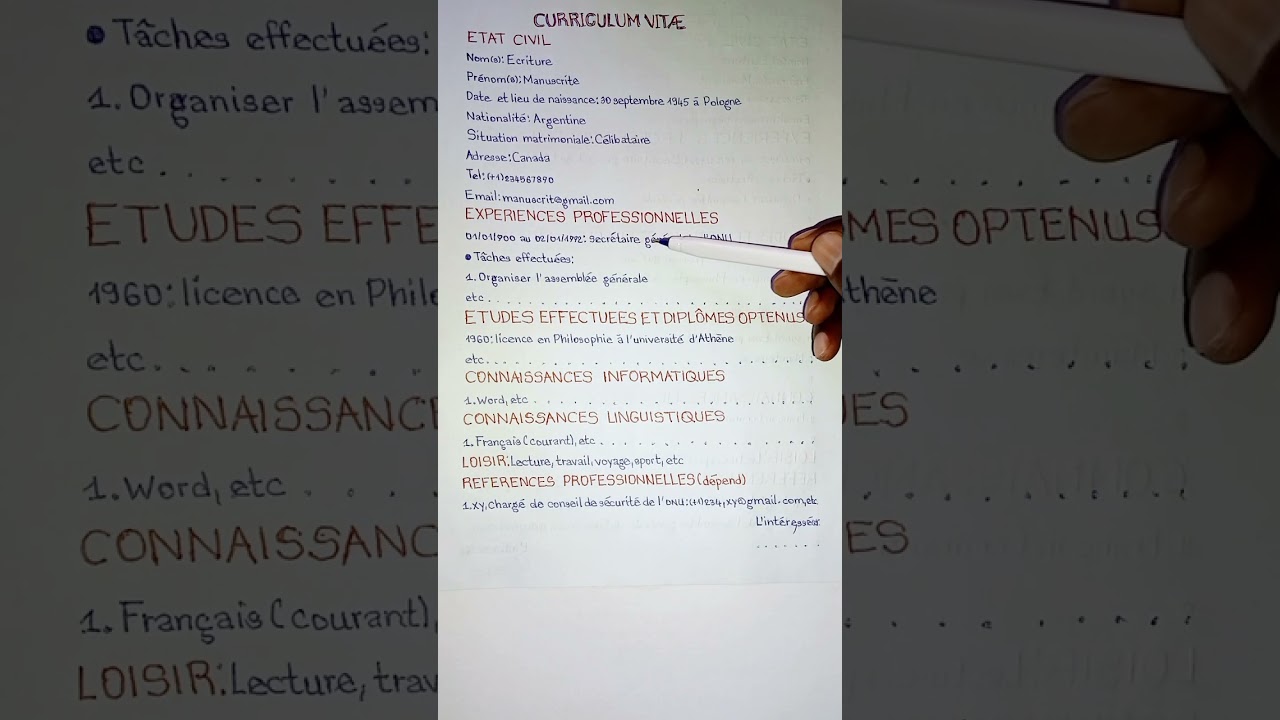 CURRICULUM VITÆ
ETAT CIVIL
Nom(s): Ecriture
Prénom(s): Manuscrite
Date et lieu de naissance: 30 septembre 1945 à Pologne
Nationalité: Argentine
Situation matrimoniale: Célibataire
Adresse: Canada
Tel: (+1)234567890
Email: manuscrit@gmail.com
EXPERIENCES PROFESSIONNELLES
01/01/1900 au 02/01/1992: secrétaire l'ONU
• Tâches effectuées:
1. Organiser l'assemblée générale
etc . . . . . . . . . . . . . . . . . . . . . . . .
ETUDES EFFECTUEES ET DIPLÔMES OPTENUS
1960: licence en Philosophie à l'université d'Athène
etc . . . . . . . . . . . . . . . . . . . . . . . .
CONNAISSANCES INFORMATIQUES
1. Word, etc . . . . . . . . . . . . . . . . . . . . .
CONNAISSANCES LINGUISTIQUES
1. Français (courant), etc . . . . . . . . . . . . . .
LOISIR: Lecture, travail, voyage, sport, etc
REFERENCES PROFESSIONNELLES (dépend)
1. xy, chargé de conseil de sécurité de l'ONU: (+1)234, xy@gmail.com, etc
L'intéressé
. . . . . . .